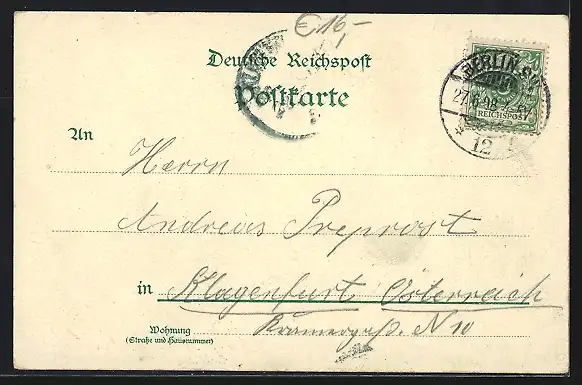 € 16,-
Deutsche Reichspost
Postkarte
BERLIN S.W.
27.6.98
12
REICHSPOST
An
Herrn
Andreas Preprost
in Klagenfurt Österreich
Wohnung
(Straße und Hausnummer)
Kramergaß. N 10